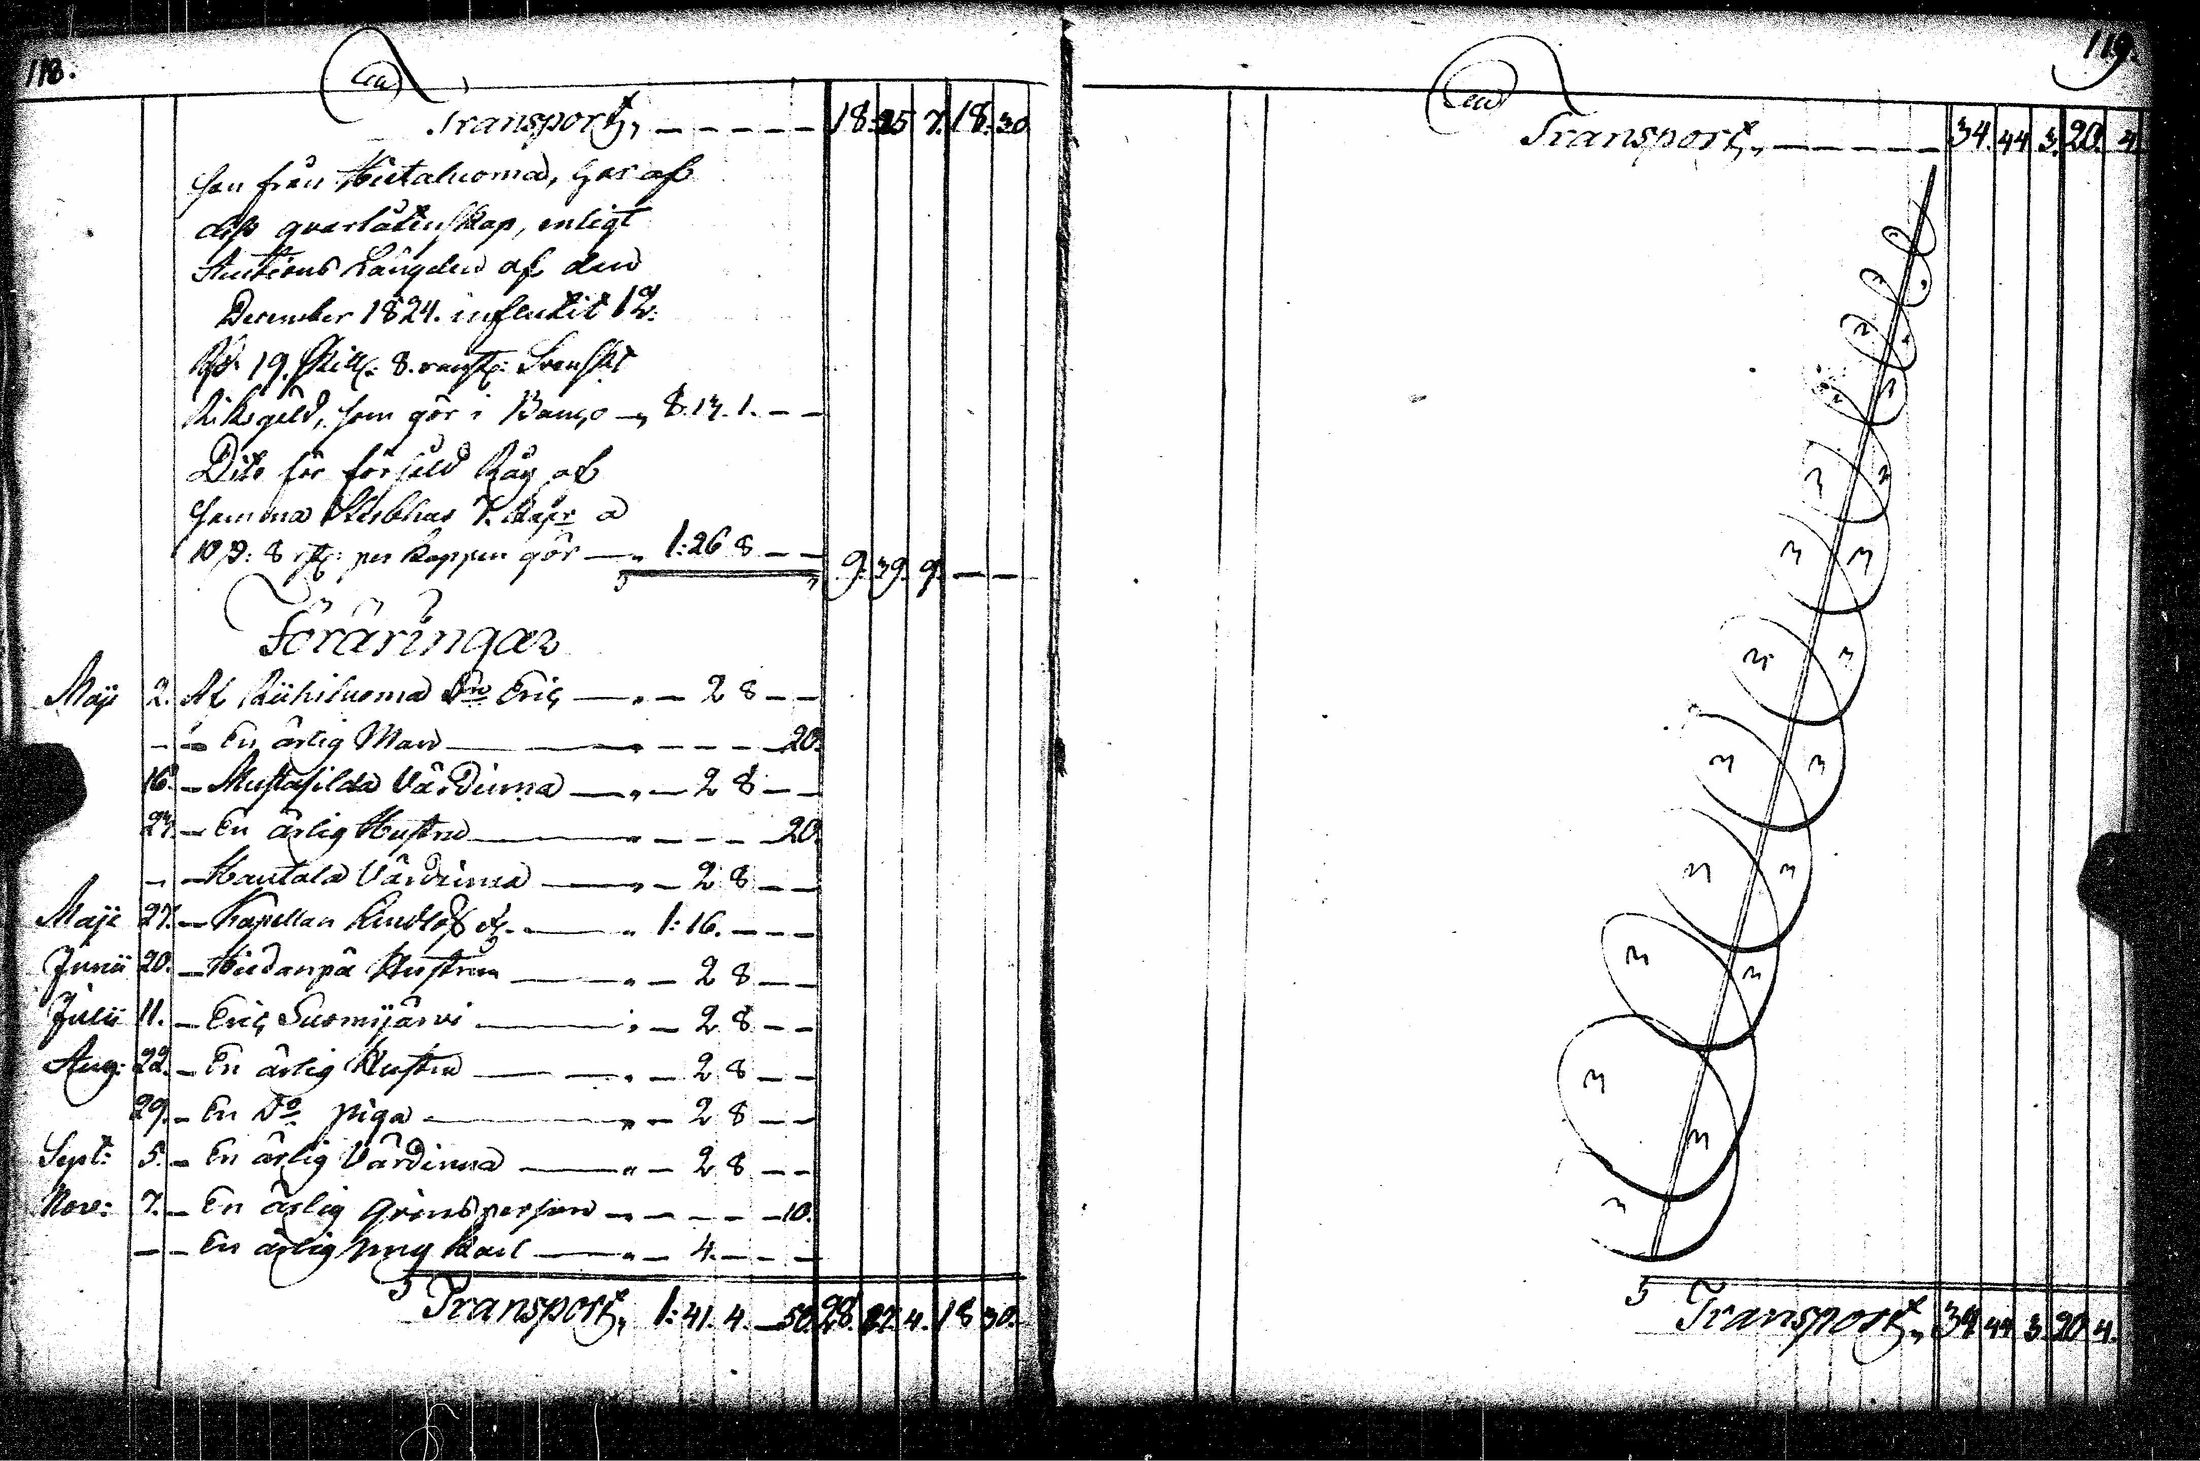 118.
Transport, — — — — — 18. 35 7. 18. 30
son från Hietaluoma, har af
dess qvarlåtenskap, enligt
Auctions Längden af den
December 1824. influtit 12.
Rd. 19. Skill. 8. rgst. Svenskt
Riksgeld, som gör i Banco — 8. 17. 1. — —
Dito för försåld Råg af
samma Sterbhus 7. kappr a
10 s: 8 rst: per kappen gör — 1: 26 8 — — 9. 39. 9. — —
Föräringar
Maji 2. Af Riihiluoma Dn Eric — „ — 2 8 — —
— — En ärlig Man — „ — — — 20.
16. — Mustasilda Värdinna — „ — 2 8 — —
27. — En ärlig Hustru — „ — — — 20.
— — Hautala Värdinna — „ — 2 8 — —
Maji 27. — Kapellan Lindlöf — „ 1: 16. — — —
Junii 20. — Hiedanpä Hustrun — „ — 2 8 — —
Julii 11. — Eric Suomijärvi — „ — 2 8 — —
Aug: 22. — En ärlig Hustru — „ — 2 8 — —
29. — En Do piga — „ — 2 8 — —
Sept: 5. — En ärlig Värdinna — „ — 2 8 — —
Nov: 7. — En ärlig Qvinsperson — „ — — — 10.
— — En ärlig ung Karl — „ — 4. — — —
Transport, 1: 41. 4. — 50. 28. 27. 4. 18 30.
119.
Transport, — — — — — 34. 44 3. 20. 4.
Transport, 34. 44 3. 20 4.